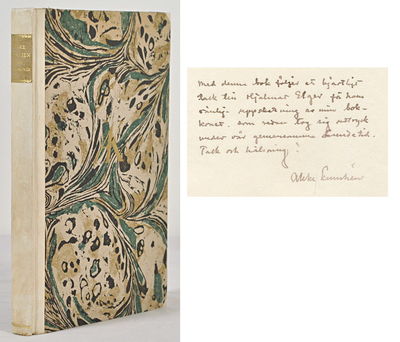 Med denna bok följer ett hjärtligt
tack till Hjalmar för hans
vänliga uppskattning av min bok-
konst som redan tog sig uttryck
under vår gemensamma
Tack och hälsning!
Akke Kumlien